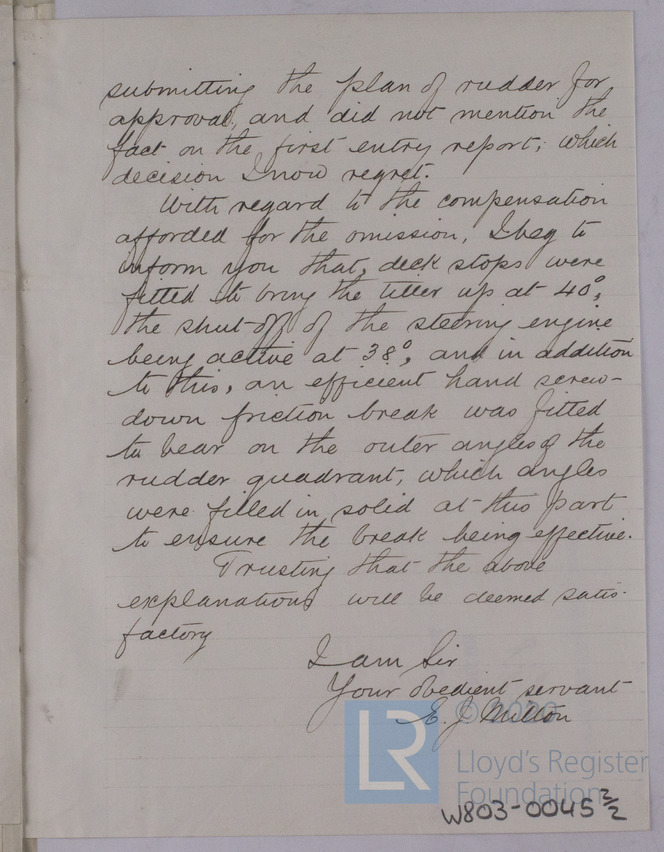 submitting the plan of rudder for
approval, and did not mention the
fact on the first entry report; which
decision I now regret.
With regard to the compensation
afforded for the omission, I beg to
inform you that, deck stops were
fitted to bring the tiller up at 40°,
the shut-off of the steering engine
being active at 38°, and in addition
to this, an efficient hand screw-
down friction break was fitted
to bear on the outer angles of the
rudder quadrant, which angles
were filled in solid at this part
to ensure the break being effective.
Trusting that the above
explanations will be deemed satis-
factory
I am Sir
Your obedient servant
E. J. Milton
© 2020
LR
Lloyd's Register
Foundation
W803-0045 2/2